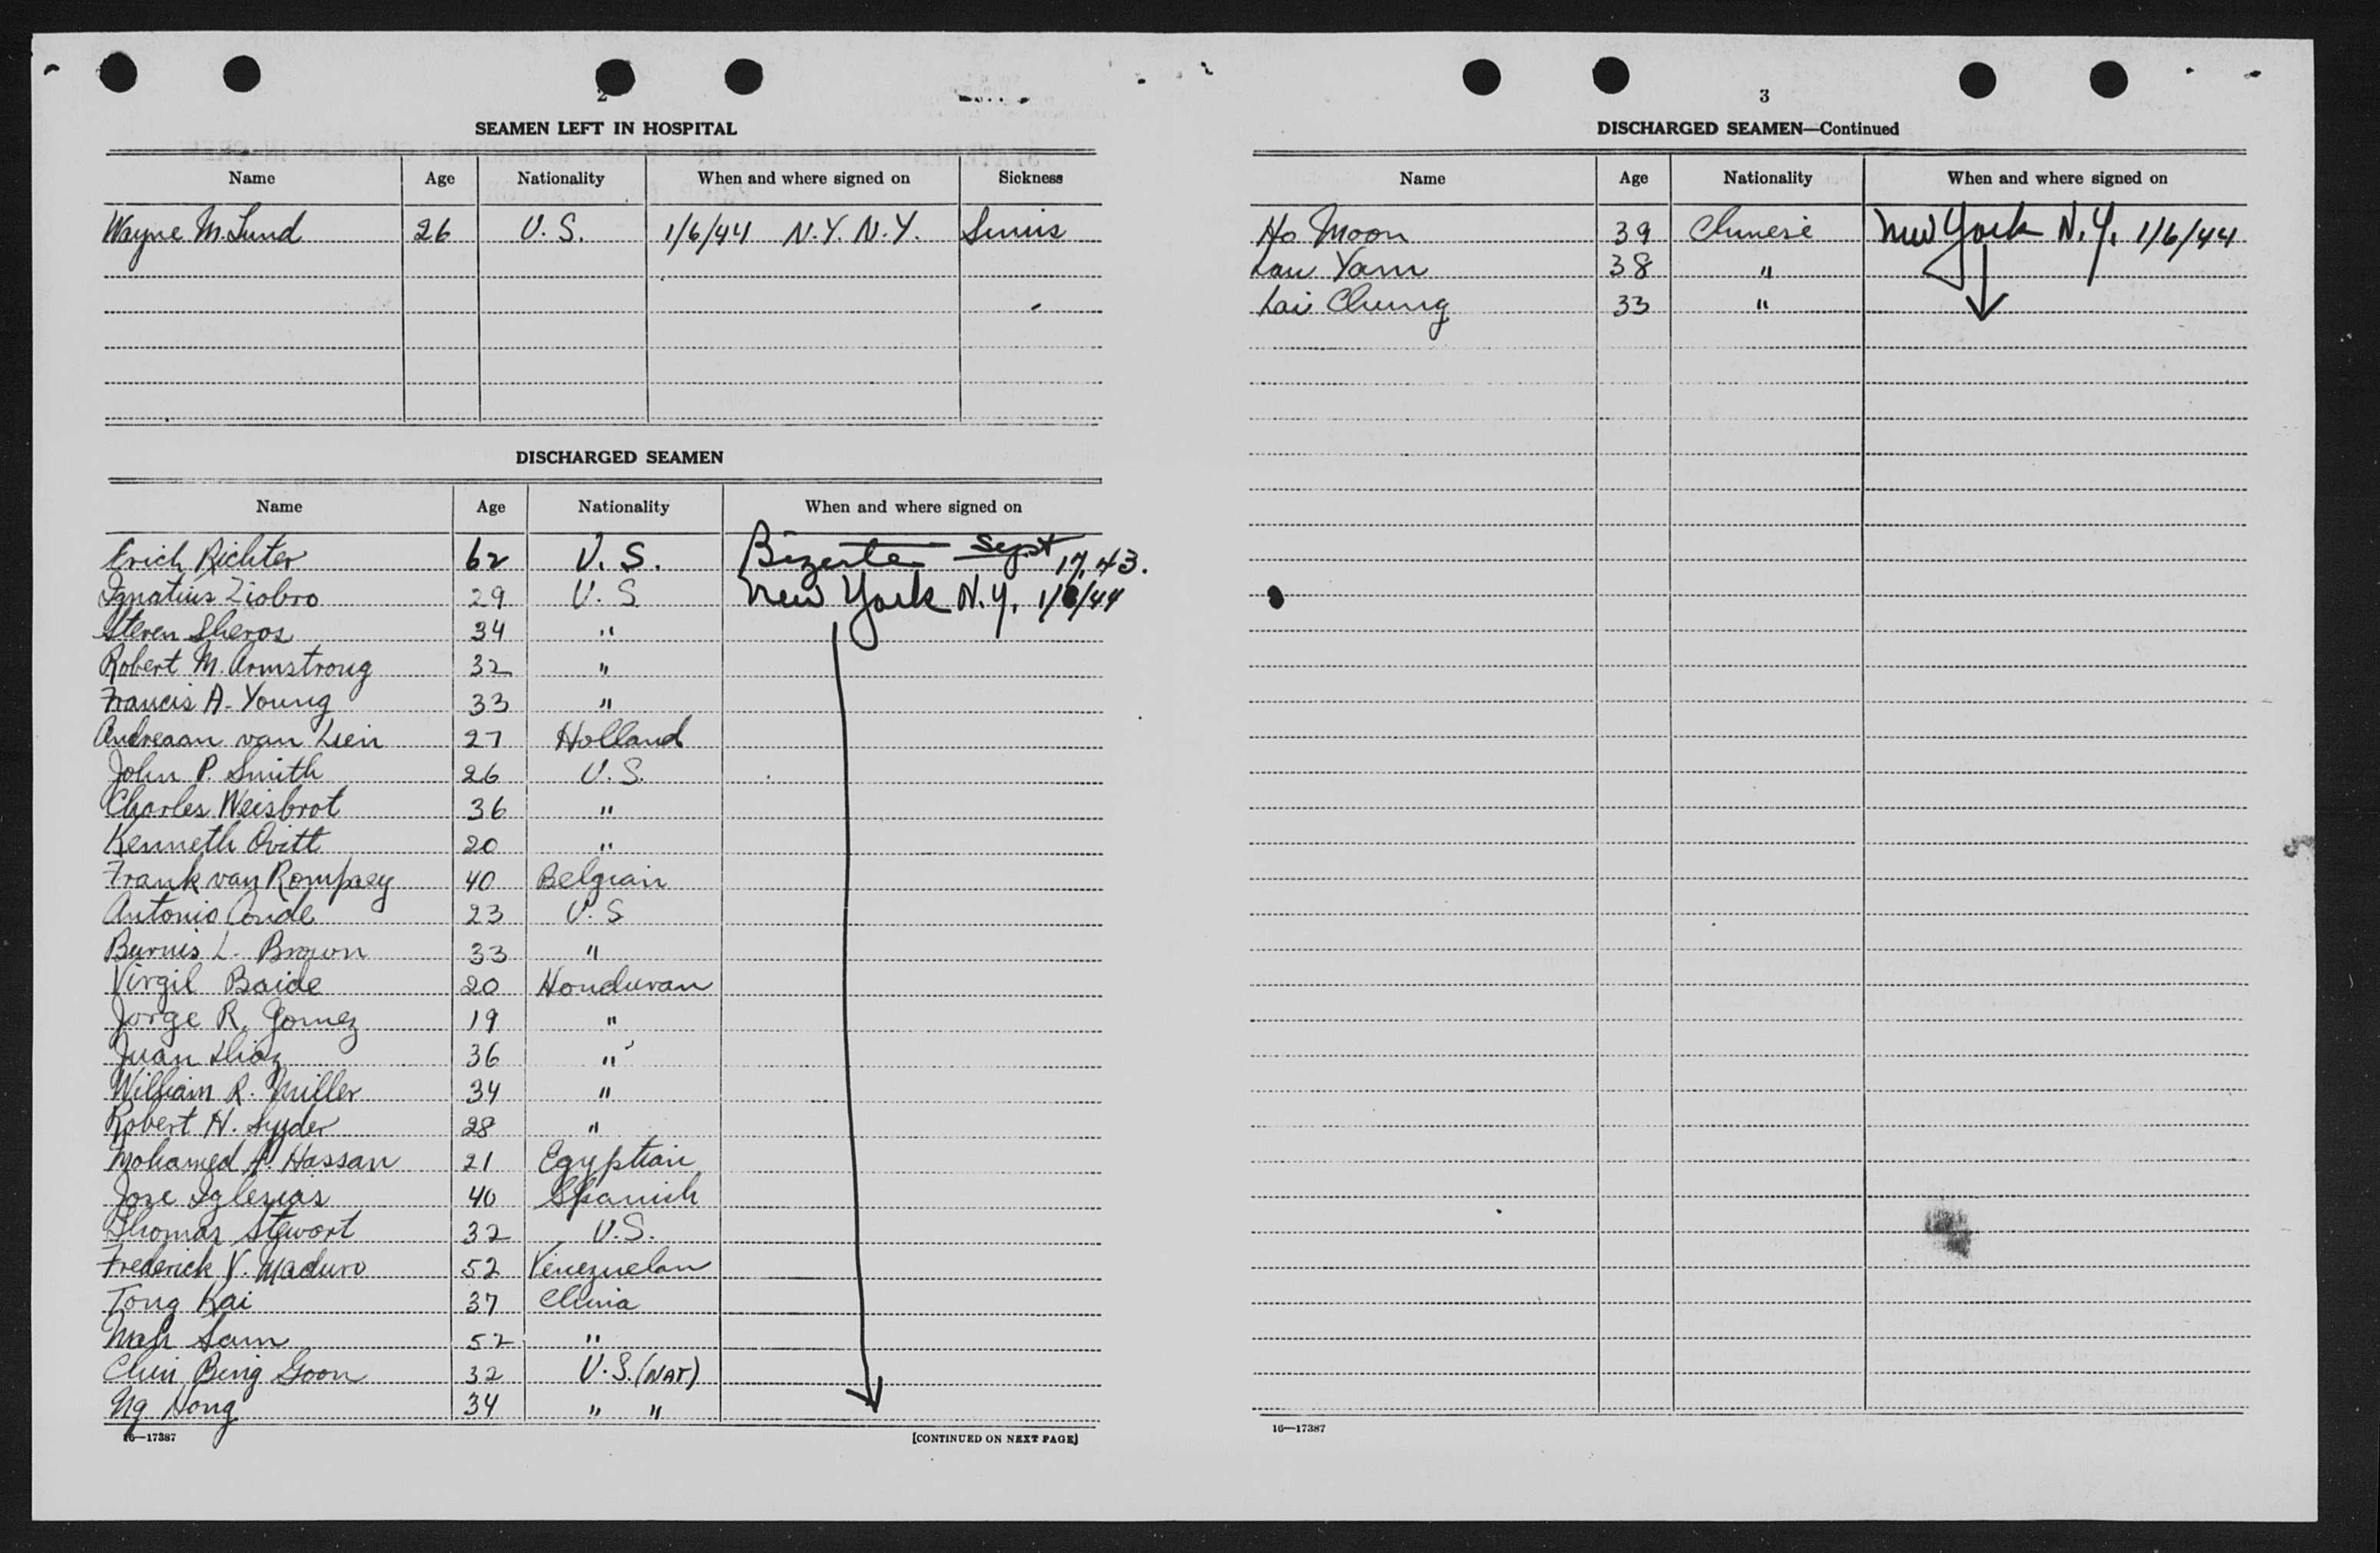 2
SEAMEN LEFT IN HOSPITAL
Name Age Nationality When and where signed on Sickness
Wayne M. Lund 26 U. S. 1/6/44 N.Y. N.Y. Sinus
DISCHARGED SEAMEN
Name Age Nationality When and where signed on
Erich Richter 62 U. S. Bizerte Sept 17, 43.
Ignatius Ziobro 29 U. S New York N.Y. 1/6/44
Steven Sheros 34 "
Robert M. Armstrong 32 "
Francis A. Young 33 "
Andreaan van Lien 27 Holland
John P. Smith 26 U.S.
Charles Weisbrot 36 "
Kenneth Ovitt 20 "
Frank van Rompaey 40 Belgian
Antonio Conde 23 U. S
Burnis L. Brown 33 "
Virgil Baide 20 Honduran
Jorge R. Gomez 19 "
Juan Diaz 36 "
William R. Miller 34 "
Robert H. Snyder 28 "
Mohamed A. Hassan 21 Egyptian
Jose Iglesias 40 Spanish
Thomas Stewart 32 U.S.
Frederick V. Maduro 52 Venezuelan
Tong Kai 37 China
Mah Sam 52 "
Chin Bing Goon 32 U.S. (NAT)
Ng Hong 34 " "
16—17387 [CONTINUED ON NEXT PAGE]
3
DISCHARGED SEAMEN—Continued
Name Age Nationality When and where signed on
Ho Moon 39 Chinese New York N.Y. 1/6/44
Lau Yam 38 "
Lai Chung 33 "
16—17387